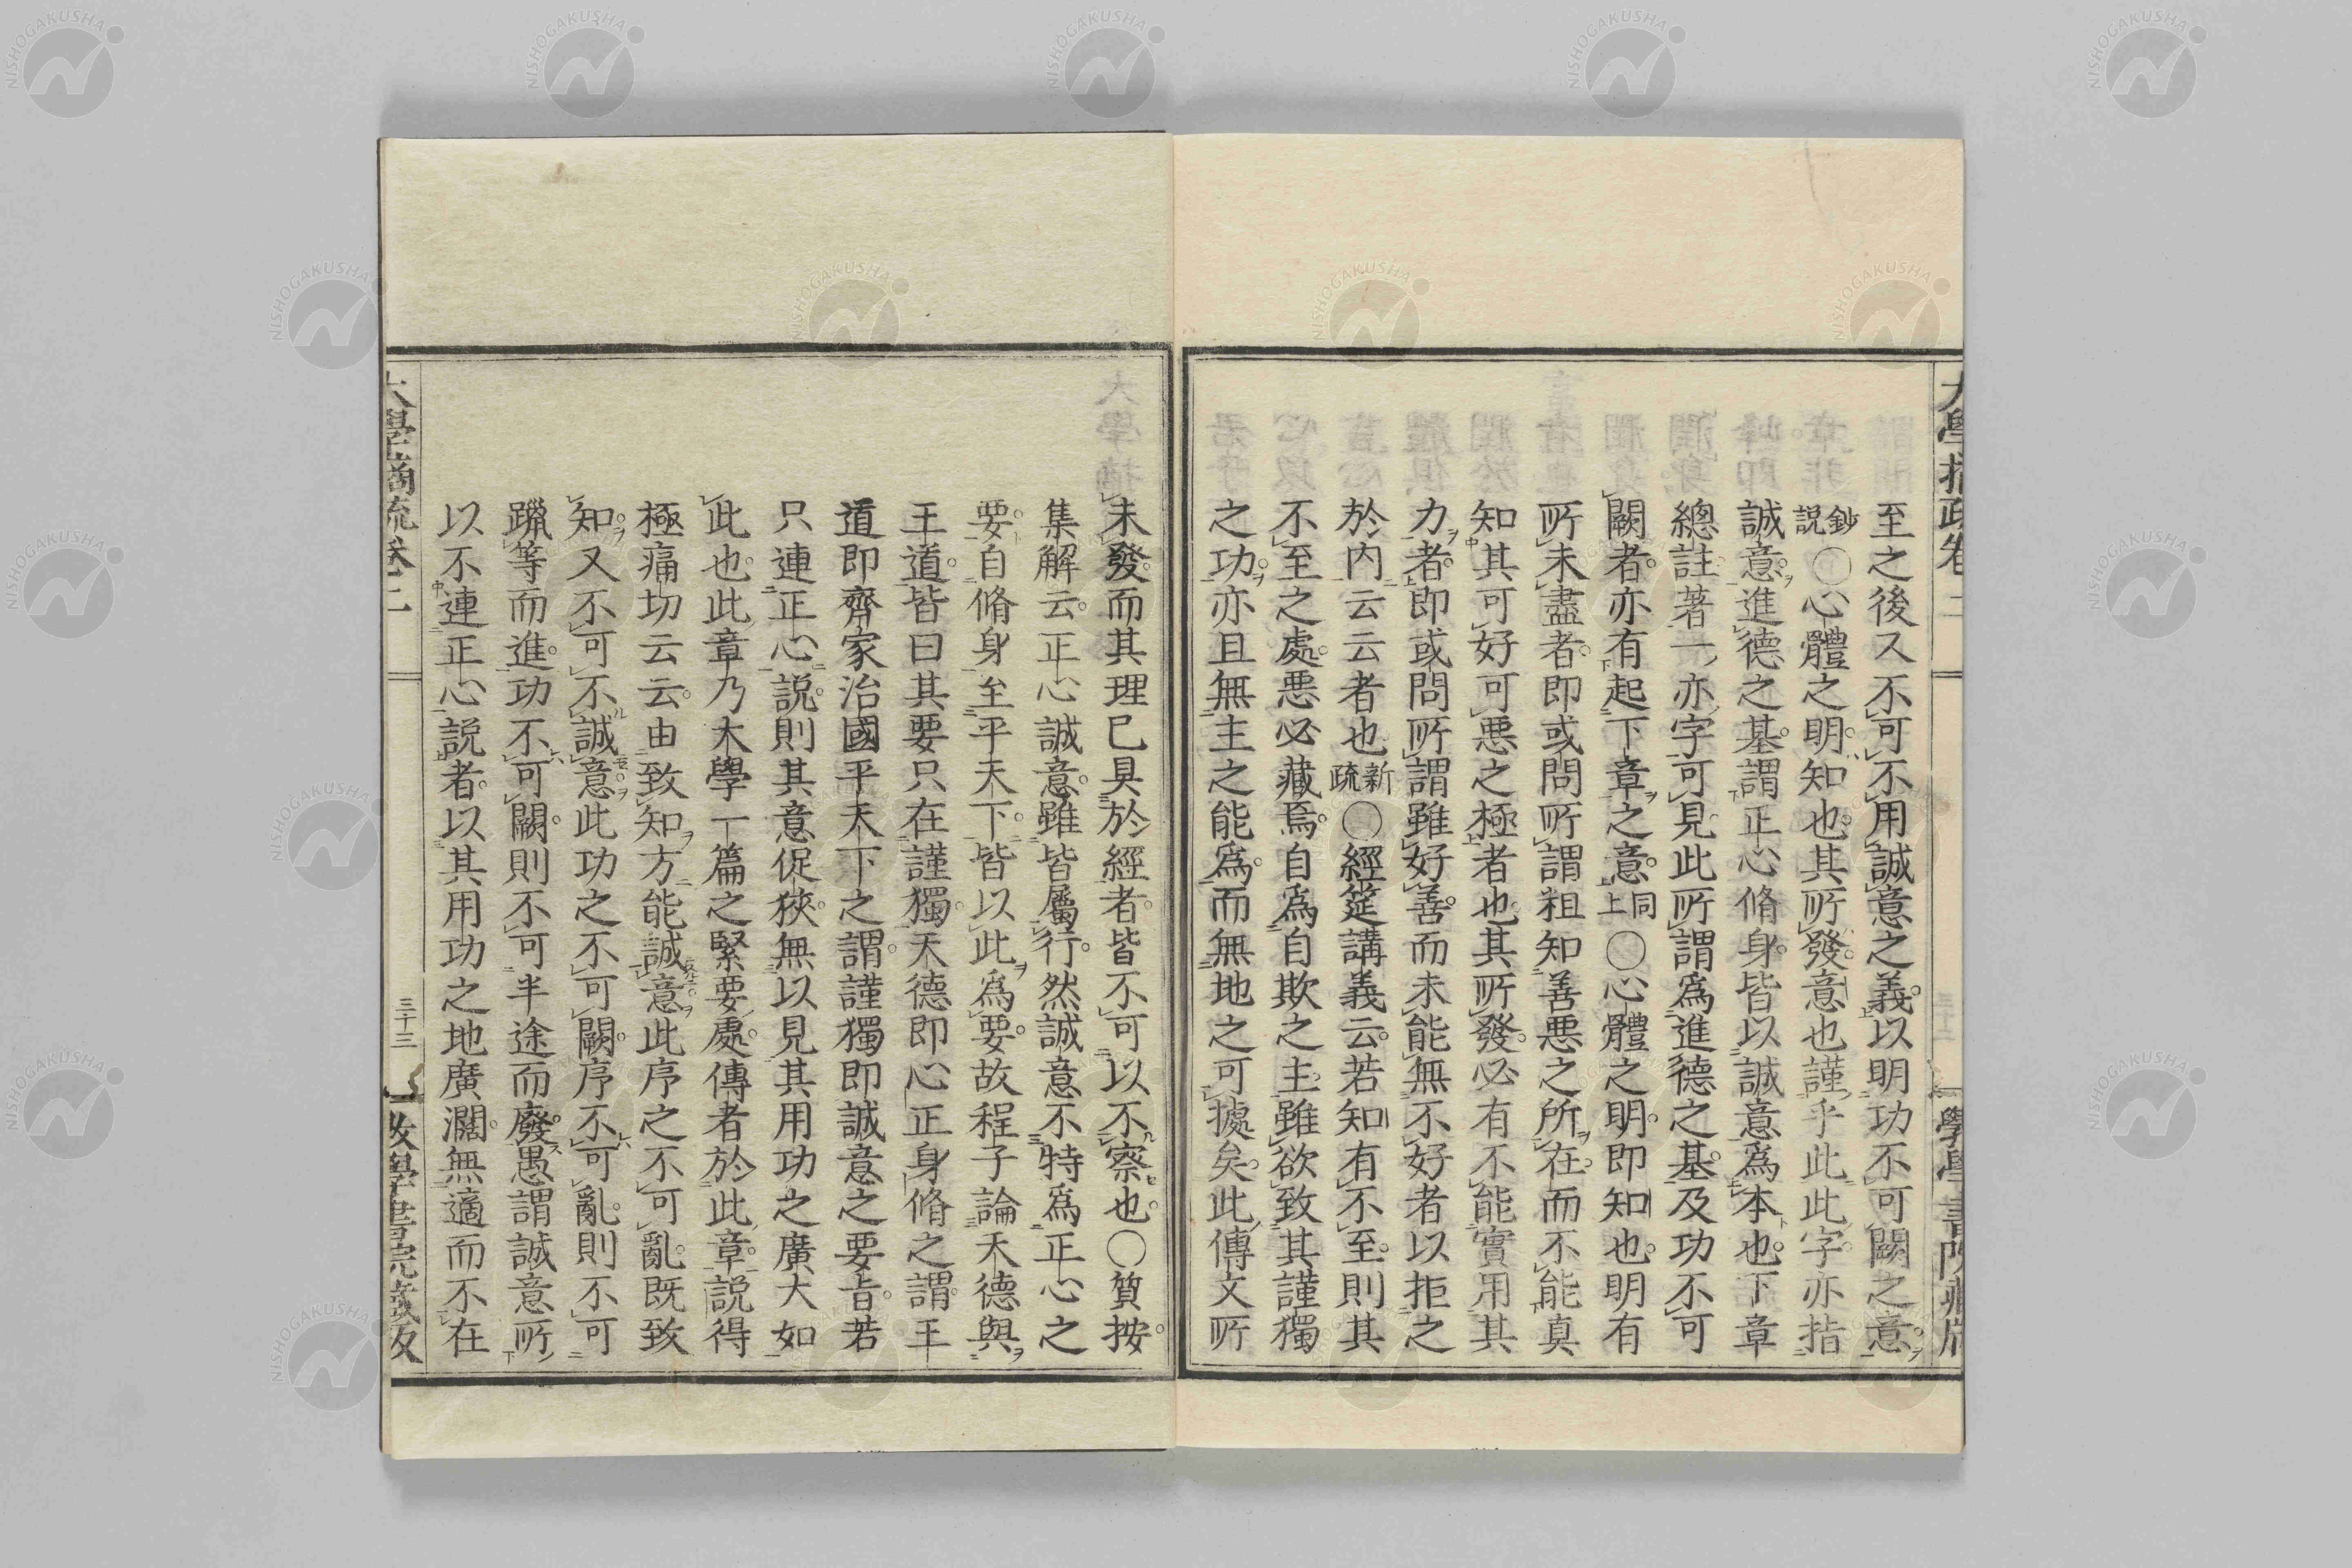 大學摘疏卷二
學學書院藏版
至之後又不可不用誠意之義以明功不可闕之意
鈔說○心體之明知也其所發意也謹乎此此字亦指
誠意進德之基謂正心脩身皆以誠意爲本也下章
總註著一亦字可見此所謂爲進德之基及功不可
闕者亦有起下章之意同上○心體之明即知也明有
所未盡者即或問所謂粗知善惡之所在而不能真
知其可好可惡之極者也其所發必有不能實用其
力者即或問所謂雖好善而未能無不好者以拒之
於內云云者也新疏○經筵講義云若知有不至則其
不至之處惡必藏焉自爲自欺之主雖欲致其謹獨
之功亦且無主之能爲而無地之可據矣此傳文所
未發而其理已具於經者皆不可以不察也○質按
集解云正心誠意雖皆屬行然誠意不特爲正心之
要自脩身至平天下皆以此爲要故程子論天德與
王道皆曰其要只在謹獨天德即心正身脩之謂王
道即齊家治國平天下之謂謹獨即誠意之要旨若
只連正心說則其意促狹無以見其用功之廣大如
此也此章乃大學一篇之緊要處傳者於此章說得
極痛切云云由致知方能誠意此序之不可亂既致
知又不可不誠意此功之不可闕序不可亂則不可
躐等而進功不可闕則不可半途而廢愚謂誠意所
以不連正心說者以其用功之地廣濶無適而不在
大學摘疏卷二
三十三
學書院藏版
NISHOGAKUSHA